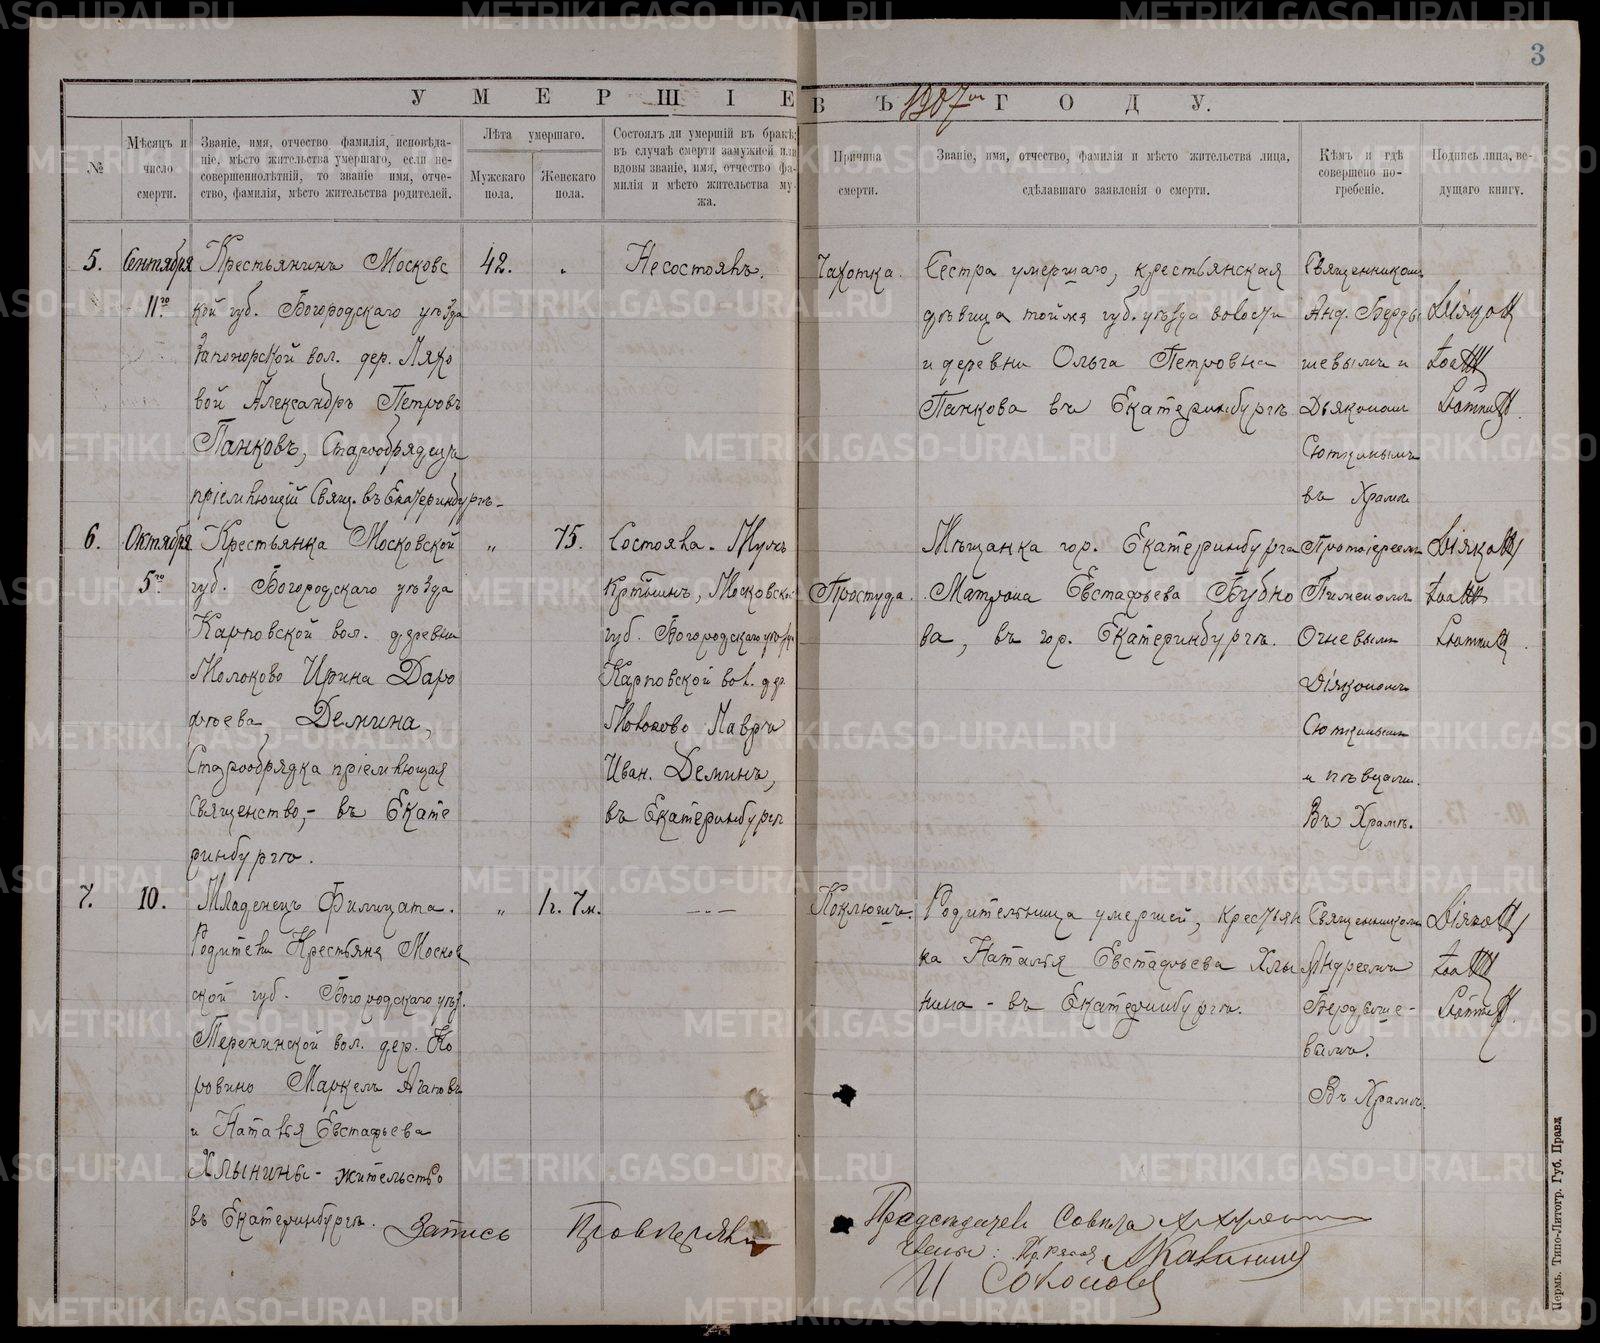 3
УМЕРШІЕ ВЪ 1907мъ ГОДУ.
№
Мѣсяцъ и
число
смерти.
Званіе, имя, отчество, фамилія, исповѣда-
ніе, мѣсто жительства умершаго, если не-
совершеннолѣтній, то званіе имя, отче-
ство, фамилія, мѣсто жительства родителей.
Лѣта умершаго.
Мужскаго
пола.
Женскаго
пола.
Состоялъ ли умершій въ бракѣ;
въ случаѣ смерти замужней или
вдовы званіе, имя, отчество фа-
милія и мѣсто жительства му-
жа.
Причина
смерти.
Званіе, имя, отчество, фамилія и мѣсто жительства лица,
сдѣлавшаго заявленія о смерти.
Кѣмъ и гдѣ
совершено по-
гребеніе.
Подпись лица, ве-
дущаго книгу.
5.
Сентября
11го
Крестьянинъ Московс
кой губ. Богородскаго уѣзда
Запонорской вол. дер. Ляхо
вой Александръ Петровъ
Панковъ, Старообрядецъ
пріемлющій Свящ. въ Екатеринбургѣ-
42.
Несостоялъ.
Чахотка.
Сестра умершаго, крестьянская
дѣвица тойже губ. уѣзда волости
и деревни Ольга Петровна
Панкова въ Екатеринбургѣ
Священникомъ
Анд. Берды
шевымъ и
Дьякономъ
Сюткинымъ
въ Храмѣ
Діяконъ
6.
Октября
5го
Крестьянка Московской
губ. Богородскаго уѣзда
Карповской вол. деревни
Молоково Ирина Доро
феева Демина,
Старообрядка пріемлющая
Священство,- въ Екате
ринбургѣ.
„
75.
Состояла. Мужъ
Крѣтьнинъ, Московской
губ. Богородскаго уѣзда
Карповской вол. дер.
Молоково Лавръ
Иван. Деминъ,
въ Екатеринбургѣ
Простуда.
Мѣщанка гор. Екатеринбурга
Матрона Евстафьева Бубно
ва, въ гор. Екатеринбургѣ.
Протоіереемъ
Пименомъ
Огневымъ
Діякономъ
Сюткинымъ
и пѣвцами.
Въ Храмѣ.
Діяконъ
7.
10.
Младенецъ Филицата.
Родители Крестьяне Москов
ской губ. Богородскаго уѣз.
Теренинской вол. дер. Ко
ровино Маркелъ Агаповъ
и Наталья Евстафьева
Хлынины- жительство
въ Екатеринбургѣ.
„
1г. 7м.
Коклюшъ.
Родительница умершей, крестьян
ка Наталья Евстафьева Хлы
нина - въ Екатеринбургѣ.
Священникомъ
Андреемъ
Бердыше-
вымъ.
Въ Храмѣ.
Діяконъ
Запись Провѣряли
Предсѣдатель Совѣта
Члены:
И Соколовъ
Пермь. Типо-Литогр. Губ. Правл
METRIKI.GASO-URAL.RU